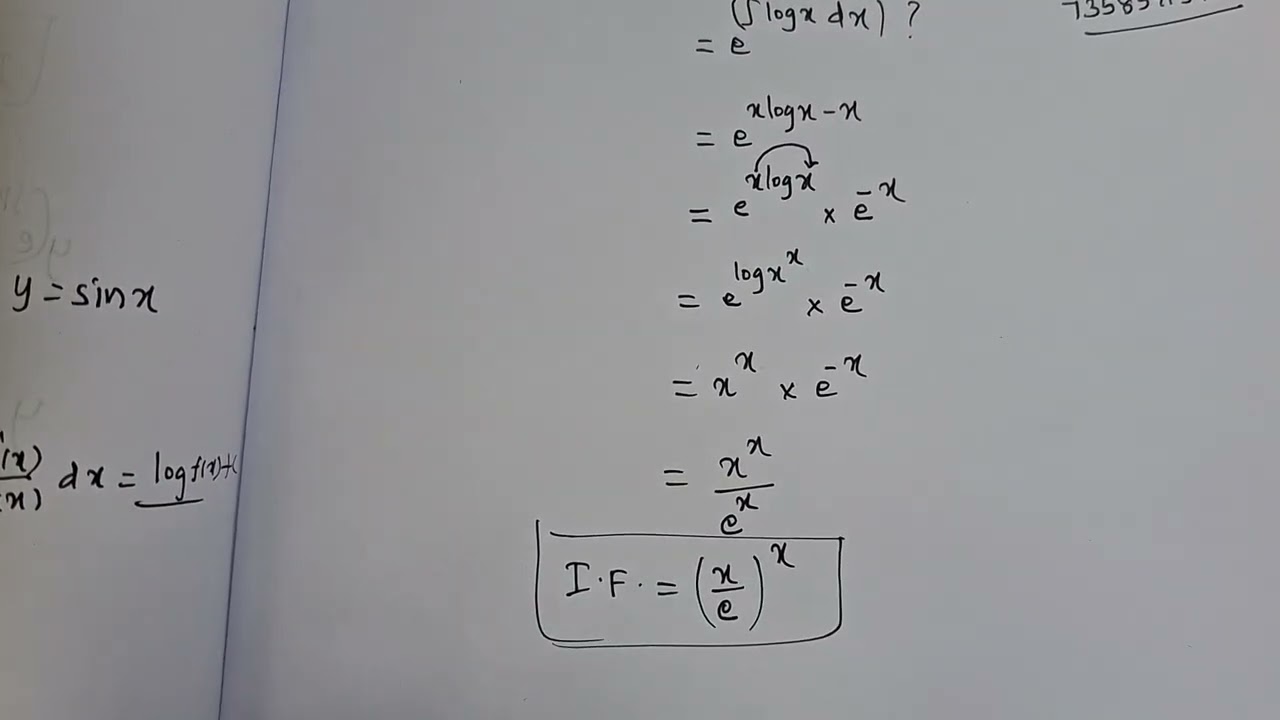 y = sinx
dx = log f(x)+c
= e^(∫logx dx) ?
= e^(xlogx - x)
= e^(xlogx) × e^(-x)
= e^(logx^x) × e^(-x)
= x^x × e^(-x)
= x^x / e^x
I.F. = (x/e)^x